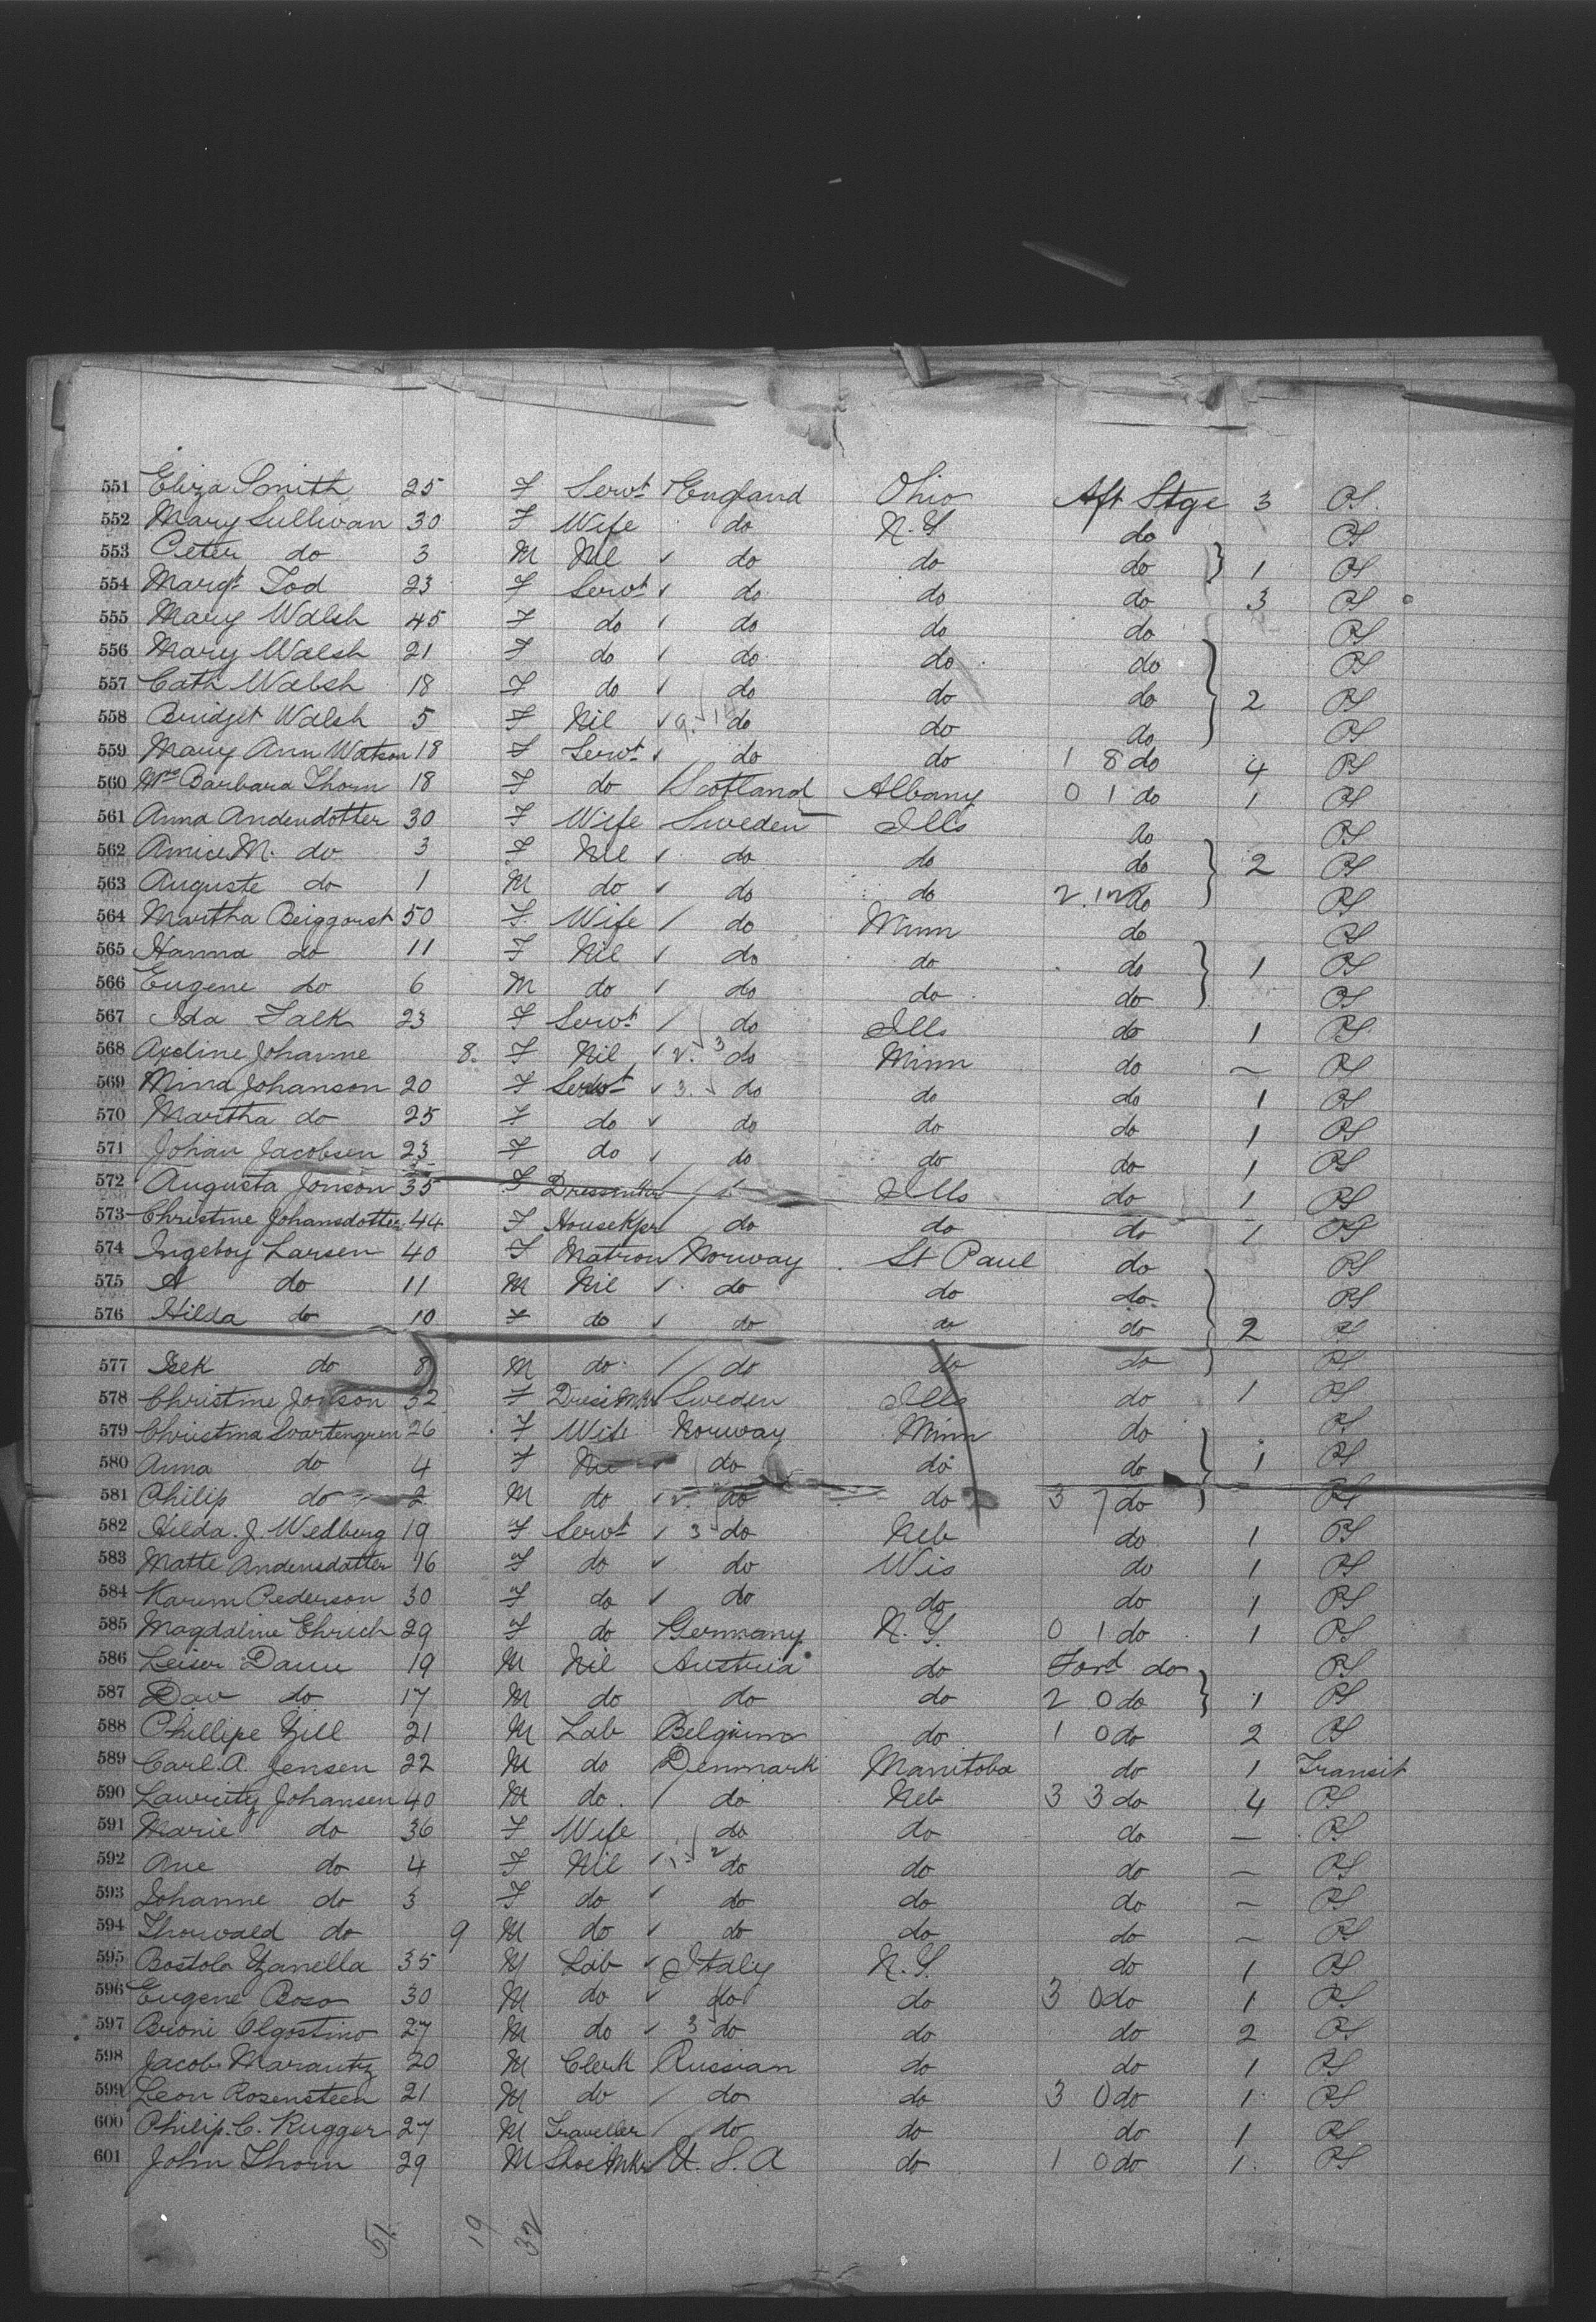 551 Eliza Smith 25 F Servt England Ohio Aft Stge 3 PS
552 Mary Sullivan 30 F Wife do N.Y do PS
553 Peter do 3 M Nil do do do 1 PS
554 Margt Tod 23 F Servt do do do 3 PS
555 Mary Walsh 45 F do do do do PS
556 Mary Walsh 21 F do do do do PS
557 Cath Walsh 18 F do do do do 2 PS
558 Bridget Walsh 5 F Nil do do do PS
559 Mary Ann Watson 18 F Servt do do 1 8 do 4 PS
560 Mrs Barbara Thorn 18 F do Scotland Albany 0 1 do 1 PS
561 Anna Andendotter 30 F Wife Sweden Ills do PS
562 M. do 3 F Nil do do do 2 PS
563 Auguste do 1 M do do do 2.12 do PS
564 Martha 50 F Wife do Minn do PS
565 Hanna do 11 F Nil do do do 1 PS
566 Eugene do 6 M do do do do PS
567 Ida Falk 23 F Servt do Ills do 1 PS
568 Axeline Johanne 8. F Nil 2. 3 do Minn do — PS
569 Mina Johanson 20 F Servt 3. do do do 1 PS
570 Martha do 25 F do do do do 1 PS
571 Johan Jacobsen 23 F do do do do 1 PS
572 Augusta Jonson 35 F Ills do 1 PS
573 Christine Johansdotter 44 F HouseKper do do do 1 PS
574 Ingeboy Larsen 40 F Matron Norway St Paul do PS
575 A do 11 M Nil do do do PS
576 Hilda do 10 F do do do do 2 PS
577 Isek do 8 M do do do do PS
578 Christine Jonson 32 F DressMkr Sweden Ills do 1 PS
579 Christina Svartengren 26 F Wife Norway Minn do PS
580 Anna do 4 F Nil do do do 1 PS
581 Philip do 2 M do 2. do do 3 7 do PS
582 Hilda. J. Wedberg 19 F Servt 3 do Neb do 1 PS
583 Matte Andensdatter 16 F do do Wis do 1 PS
584 Karem Pederson 30 F do do do do 1 PS
585 Magdaline Ehrich 29 F do Germany N.Y. 0 1 do 1 PS
586 Leiser 19 M Nil Austria do Ford do PS
587 Dav do 17 M do do do 2 0 do 1 PS
588 Phillipe Zill 21 M Lab Belgium do 1 0 do 2 PS
589 Carl. A. Jensen 22 M do Denmark Manitoba do 1 Transit
590 Lawritz Johansen 40 M do do Neb 3 3 do 4 PS
591 Marie do 36 F Wife do do do — PS
592 Ane do 4 F Nil 2 do do do — PS
593 Johanne do 3 F do do do do — PS
594 Thorwald do 9 M do do do do — PS
595 Bostolo Zanella 35 M Lab Italy N.Y. do 1 PS
596 Eugene Boso 30 M do do do 3 0 do 1 PS
597 Brioni Olgostino 27 M do 3 do do do 2 PS
598 Jacob Marantz 20 M Clerk Russian do do 1 PS
599 Leon Rosensteen 21 M do do do 3 0 do 1 PS
600 Philip. C. Rugger 27 M Traveller do do do 1 PS
601 John Thorn 29 M ShoeMkr U.S.A do 1 0 do 1 PS
51 19 32